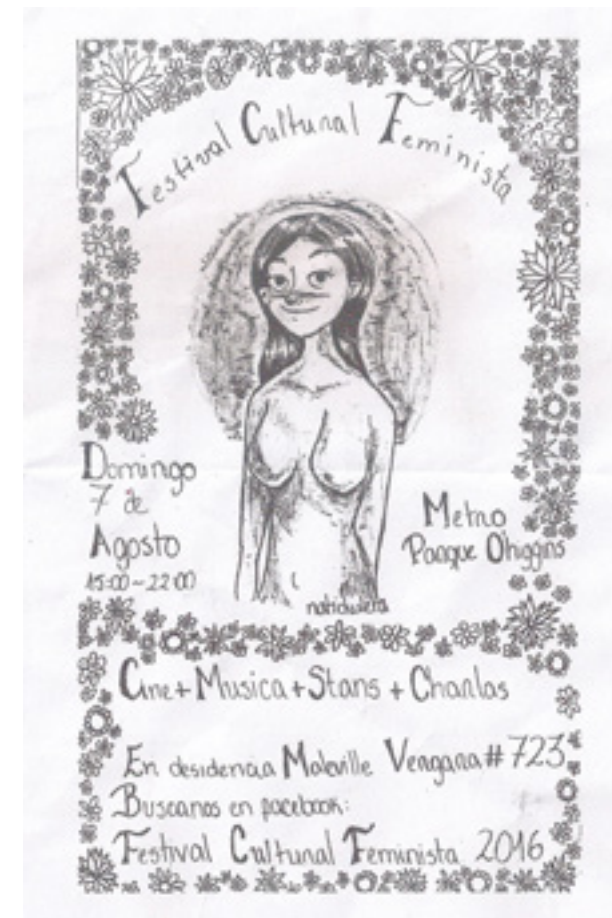 Festival Cultural Feminista
Domingo
7 de
Agosto
15:00-22:00
Metro
Parque Ohiggins
Cine + Musica + Stans + Charlas
En desidencia Maleville Vergara #723
Buscanos en facebook:
Festival Cultural Feminista 2016